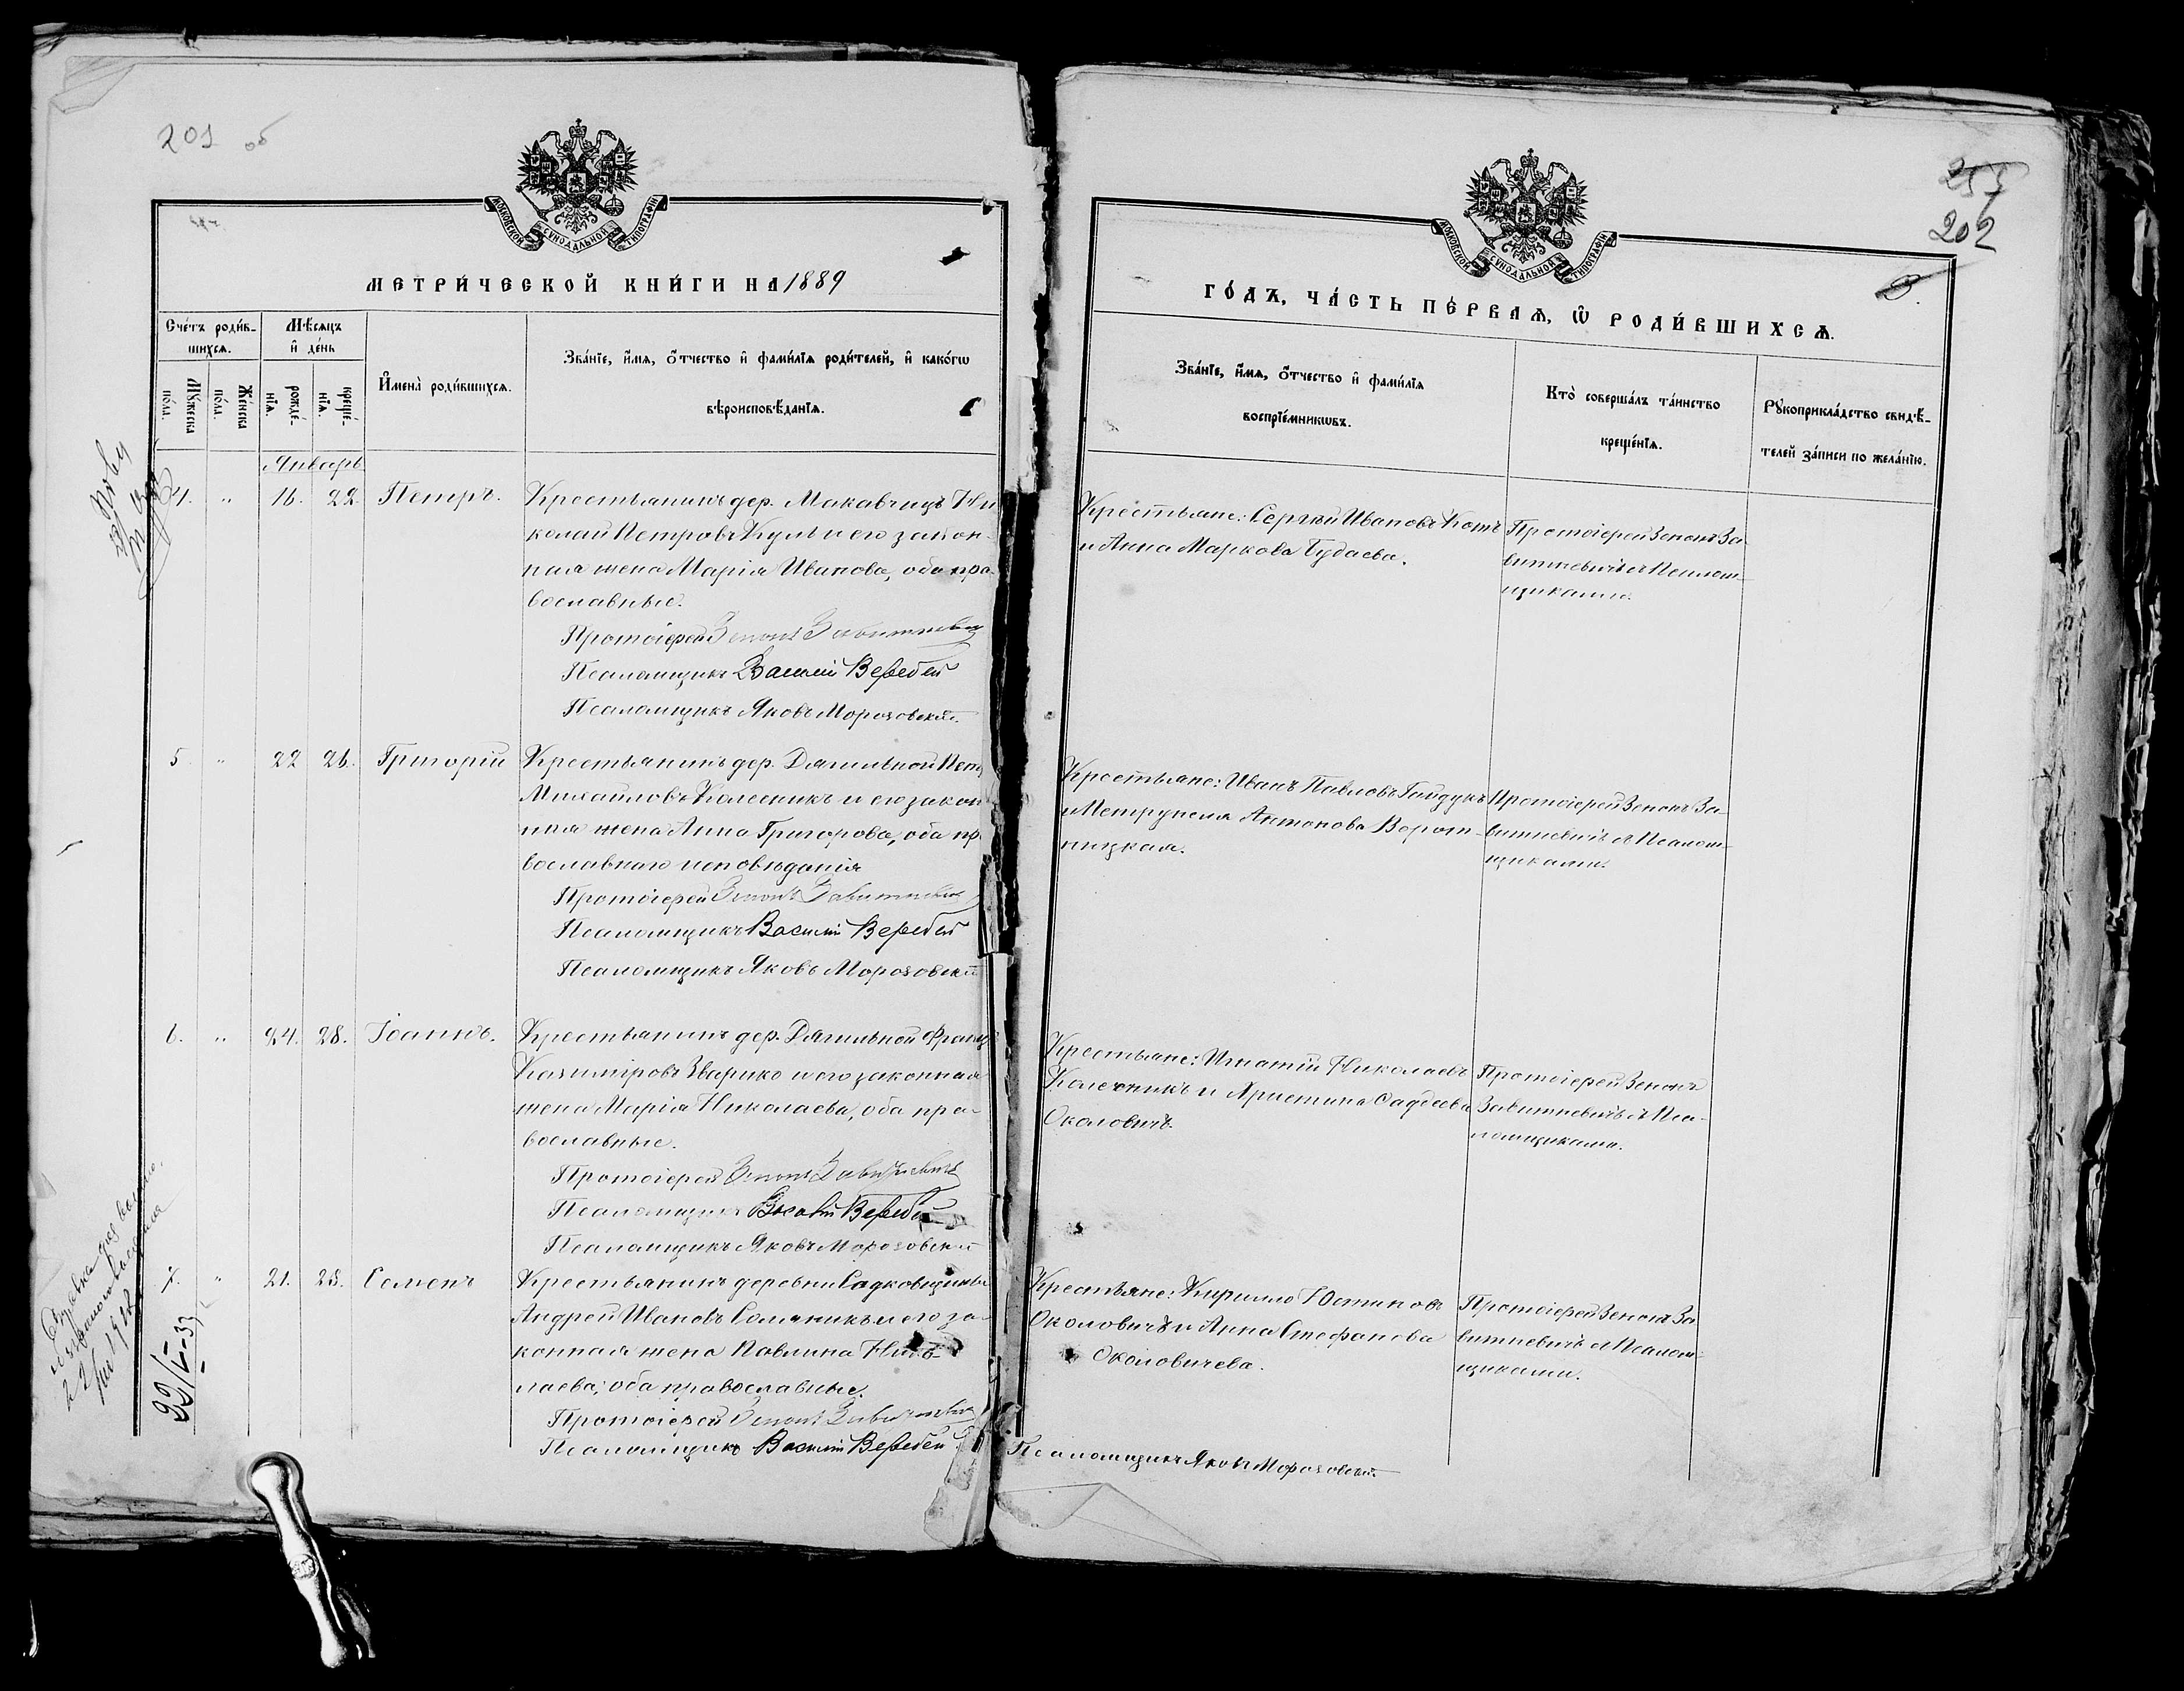 201 об
МОСКОВСКОЙ СѴНОДАЛЬНОЙ ТИПОГРАФІИ
МЕТРИ́ЧЕСКОЙ КНИ́ГИ НА 1889
Сче́тъ роди́в-
шихсѧ.
Мѣ́сѧцъ
и҆ де́нь
Мꙋ́жеска
по́ла.
Же́нска
по́ла.
рожде́-
нїѧ.
креще́-
нїѧ.
И҆мена̀ роди́вшихсѧ.
Зва́нїе, и҆́мѧ, ѻ҆́тчество и҆ фами́лїѧ роди́телей, и҆ како́гѡ
вѣроисповѣ́данїѧ.
Январь
4. " 16. 22. Петръ. Крестьянинъ дер. Макавчицъ Ни
колай Петровъ Куль и его закон-
ная жена Марія Иванова, оба пра-
вославные.
Протоіерей Зенонъ Завитневич
Псаломщикъ Василий Веребей
Псаломщикъ Яковъ Морозовский.
5 " 22 26. Григорій Крестьянинъ дер. Дягильной Петр
Михайловъ Колесникъ и его закон
ная жена Анна Григорова, оба пр
вославнаго исповѣданія
Протоіерей Зенонъ Завитневич
Псаломщикъ Василий Веребей
Псаломщикъ Яковъ Морозовский
6. " 24. 28. Іоаннъ. Крестьянинъ дер. Дягильной Франц
Казиміровъ Зварико и его законная
жена Марія Николаева, оба пра-
вославные.
Протоіерей Зенонъ Завитневичъ
Псаломщикъ Василий Веребей
Псаломщикъ Яковъ Морозовский
7. " 21. 28. Семенъ Крестьянинъ деревни Садковщины
Андрей Ивановъ Соляникъ и его за-
конная жена Павлина Нико-
лаева, оба православные.
Протоіерей Зенонъ Завитневич
Псаломщикъ Василий Веребей
22/V-33
257
202
МОСКОВСКОЙ СѴНОДАЛЬНОЙ ТИПОГРАФІИ
ГО́ДЪ, ЧА́СТЬ ПЕ́РВАѦ, Ѡ҆ РОДИ́ВШИХСѦ.
Зва́нїе, и҆́мѧ, ѻ҆́тчество и҆ фами́лїѧ
воспрїе́мникѡвъ.
Кто̀ соверша́лъ та́инство
креще́нїѧ.
Рꙋкоприкла́дство свидѣ́-
телей за́писи по жела́нїю.
Крестьяне: Сергѣй Ивановъ Котъ
и Анна Маркова Будаева.
Протоіерей Зенонъ За
витневичъ съ Псалом-
щиками.
Крестьяне: Иванъ Павловъ Гайдукъ
и Петрунеля Антонова Ворот-
ницкая.
Протоіерей Зенонъ За-
витневичъ съ Псалом-
щиками.
Крестьяне: Игнатій Николаевъ
Колесникъ и Христина Фадеева
Околовичъ.
Протоіерей Зенонъ
Завитневичъ съ Пса-
ломщиками.
Крестьяне: Кирилло Юстиновъ
Околовичъ и Анна Стефанова
Околовичева.
Протоіерей Зенонъ За
витневичъ съ Псалом-
щиками.
Псаломщикъ Яковъ Морозовский.